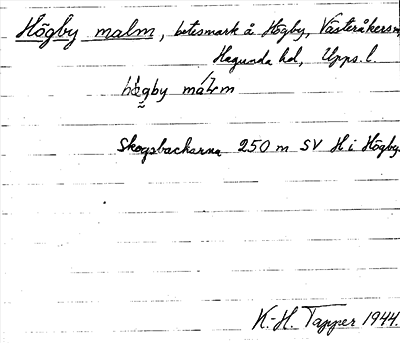 Högby malm, betesmark å Högby, Västeråkers
Hagunda hd, Upps. l.
hö̀gby málm
Skogsbackarna 250 m SV H i Högby.
K.-H. Tapper 1944.